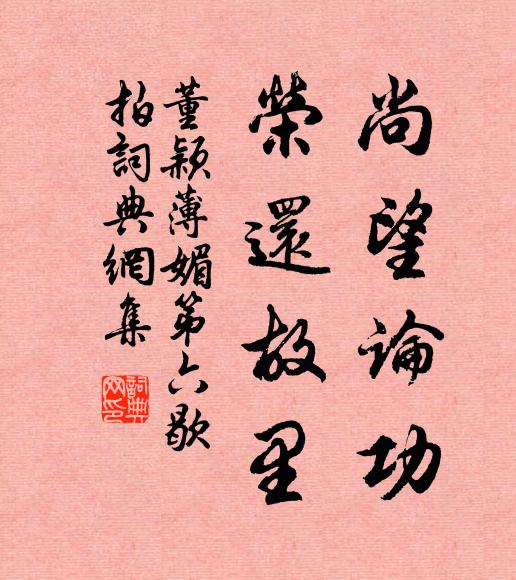 尚望論功
榮還故里
董颖薄媚第六歇
拍詞典網集
詞典网印